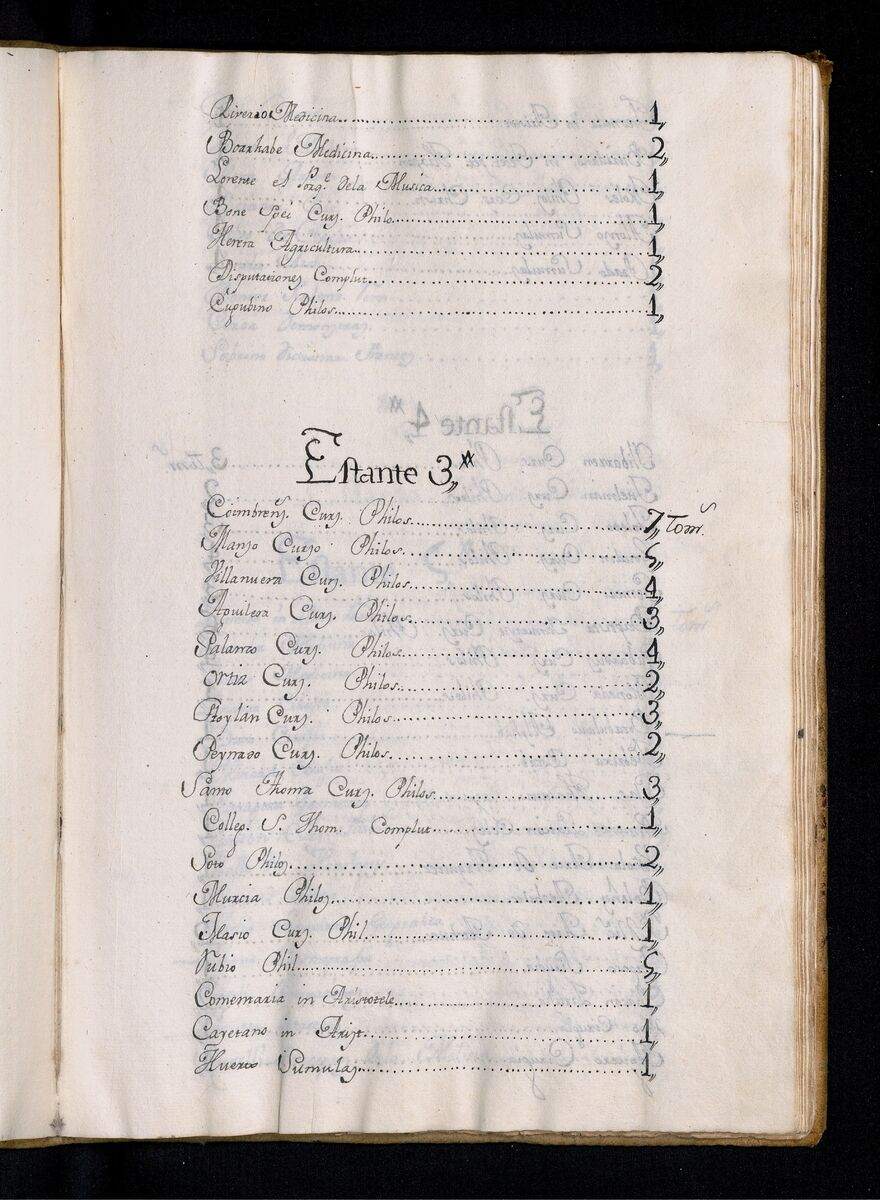 Riverio Medicina 1,,
Boarhabe Medicina 2,,
Lorente el Porq.e dela Musica 1,,
Bone Spei Curs. Philo 1,,
Herera Agricultura 1,,
Disputaciones Complut. 2,,
Philos 1,,
Estante 3,,
Coimbrens. Curs. Philos 7,, Toms.
Manso Curso Philos 5,,
Villanueva Curs. Philos 4,,
Aguilera Curs. Philos 3,,
Palanco Curs. Philos 4,,
Ortiz Curs. Philos 2,,
Froylán Curs. Philos 3,,
Peynado Curs. Philos 2,,
Santo Thoma Curs. Philos 3,,
Colleg. S. Thom. Complut. 1,,
Soto Philos 2,,
Murcia Philos 1,,
Masio Curs. Phil 1,,
Rubio Phil 5,,
Comemaria in Aristotele 1,,
Cayetano in Arist. 1,,
Huerto Sumulas 1,,